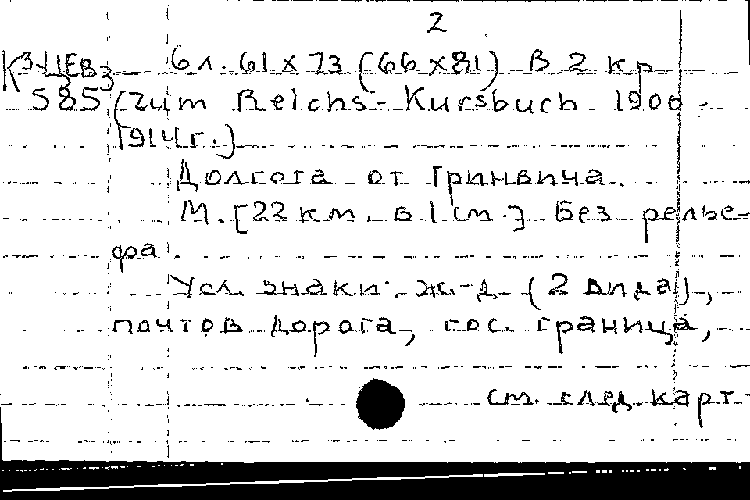 2
К3-ЦЕВ3 6л. 61х73 (66х81) В 2 кр
585 (Zum Reichs-Kursbuch 1900-
1914г.)
Долгота от Гринвича.
М. [22 км. в 1 см.] Без релье-
фа.
Усл. знаки: ж-д (2 вида),
почтов дорога, гос. граница,
см. след. карт